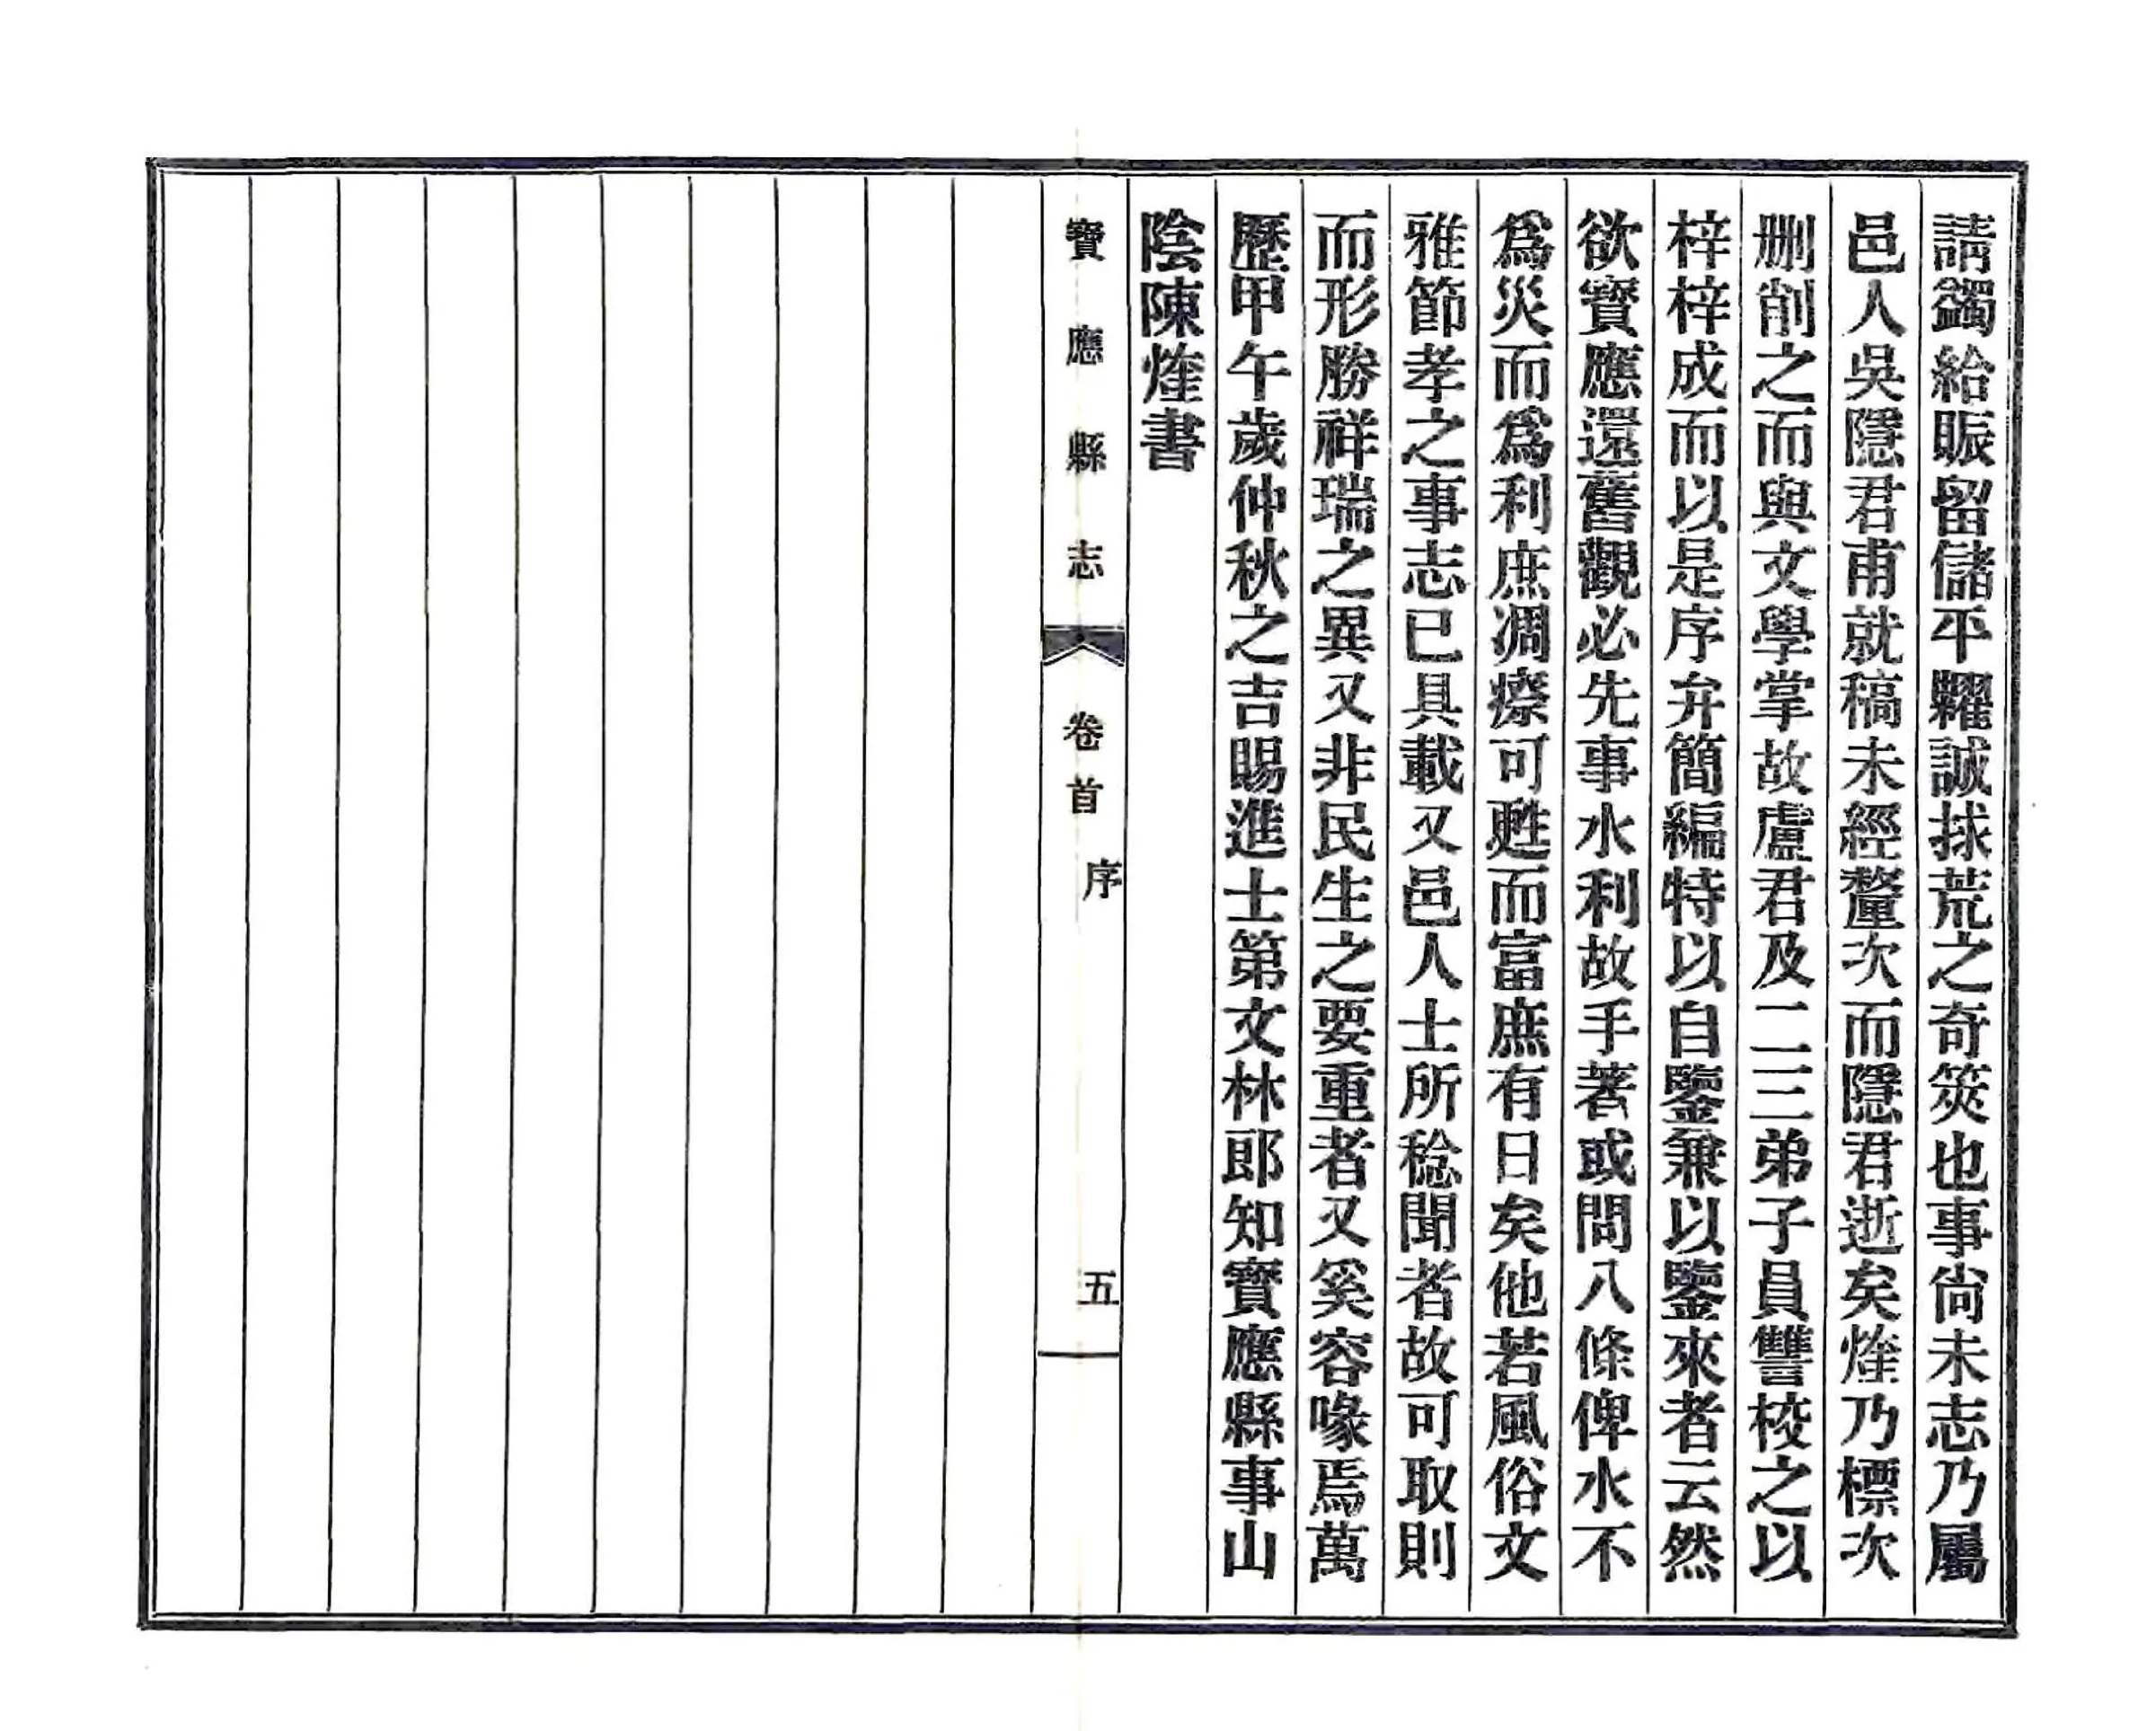 請蠲給賑留儲平糶誠捄荒之奇筴也事尙未志乃屬
邑人吳隱君甫就稿未經釐次而隱君逝矣煃乃標次
刪削之而與文學掌故盧君及二三弟子員讐校之以
梓梓成而以是序弁簡編特以自鑒兼以鑒來者云然
欲寳應還舊觀必先事水利故手著或問八條俾水不
爲災而爲利庶凋瘵可甦而富庶有日矣他若風俗文
雅節孝之事志已具載又邑人士所稔聞者故可取則
而形勝祥瑞之異又非民生之要重者又奚容喙焉萬
歷甲午歲仲秋之吉賜進士第文林郎知寳應縣事山
陰陳煃書
寶應縣志 卷首 序 五